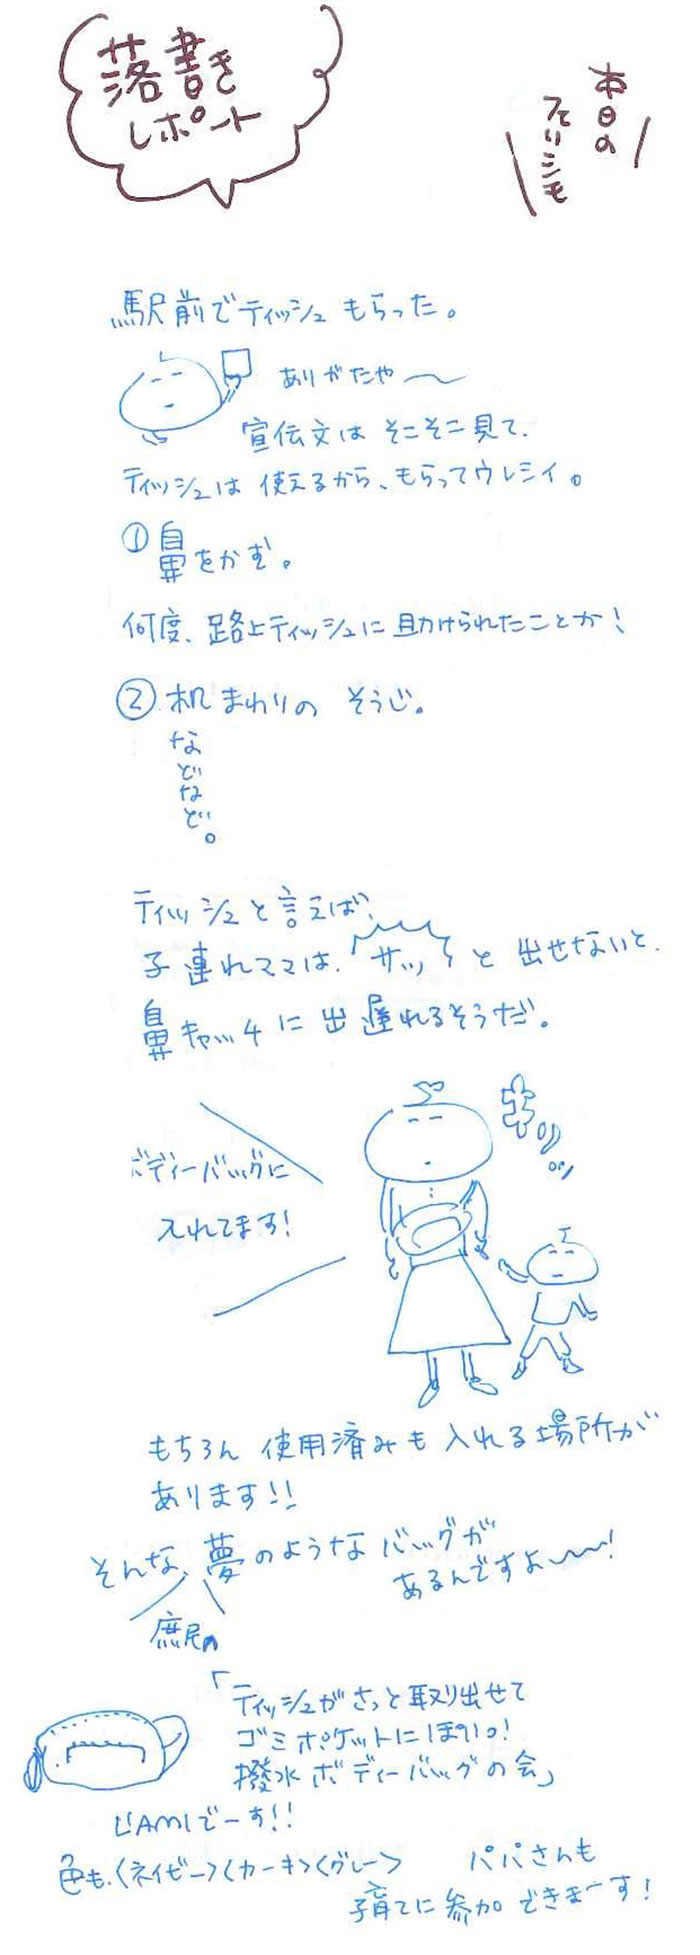 落書き
レポート
本日の
フェリシモ
駅前でティッシュもらった。
ありがたや〜
宣伝文はそこそこ見て、
ティッシュは使えるから、もらってウレシイ。
①鼻をかむ。
何度、路上ティッシュに助けられたことか!
②机まわりの そうじ。
などなど。
ティッシュと言えば、
子連れママは、サッと出せないと、
鼻キャッチに出遅れるそうだ。
キリッ
ボディーバッグに
入れてます!
もちろん 使用済みも入れる場所が
あります!!
そんな、夢のようなバッグが
あるんですよ〜〜!
庶民の
「ティッシュがさっと取り出せて
ゴミポケットにぽいっ!
撥水ボディーバッグの会」
でーす!!
色も、〈ネイビー〉〈カーキ〉〈グレー〉
パパさんも
子育てに参加できまーす!